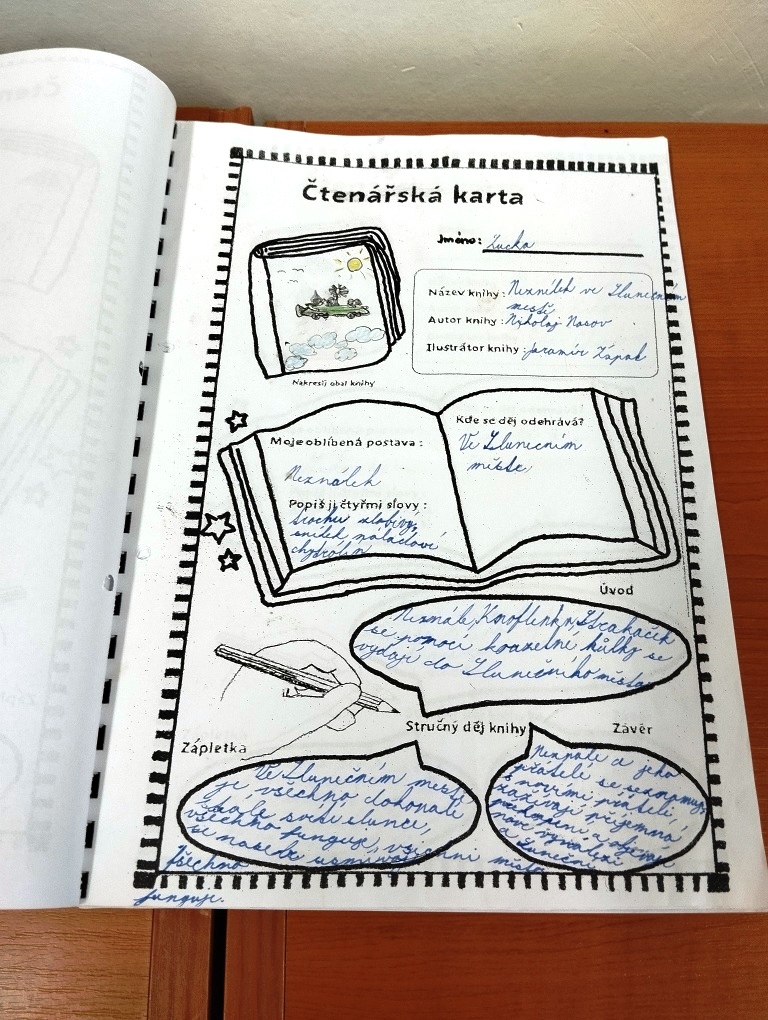 Čtenářská karta
Jméno: Lucka
Název knihy: Neználek ve Slunečním
městě
Autor knihy: Nikolaj Nosov
Ilustrátor knihy: Jaromír Zápal
Nakresli obal knihy
Moje oblíbená postava:
Neználek
Popiš ji čtyřmi slovy:
trochu zlobivý,
snílek náladové
Kde se děj odehrává?
Ve Slunečním
městě
Úvod
Neznále, Knoflenka, Strakáček
se pomocí kouzelné hůlky se
vydají do Slunečního města
Stručný děj knihy
Zápletka
Ve Slunečním měste
je všechno dokonalé
stále svítí slunce,
všechno funguje, všichni
se na sebe usmívají
Všechno
funguje.
Závěr
a jeho
přátelé se seznamují
s novými přáteli,
zažívají příjemná
a objevují
nové vynálezi
Sluneční